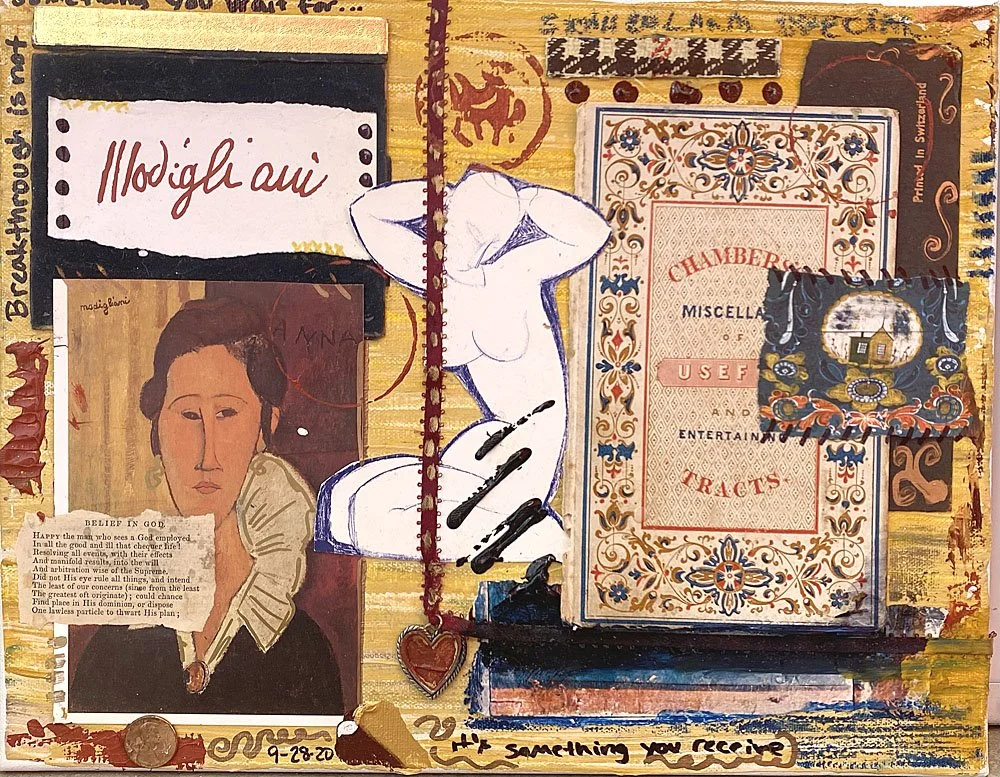 Something you wait for...
Breakthrough is not
Modigliani
modigliani
ANNA
BELIEF IN GOD.
HAPPY the man who sees a God employed
In all the good and ill that chequer life!
Resolving all events, with their effects
And manifold results, into the will
And arbitration wise of the Supreme.
Did not His eye rule all things, and intend
The least of our concerns (since from the least
The greatest oft originate); could chance
Find place in His dominion, or dispose
One lawless particle to thwart His plan;
9-28-20
Printed in Switzerland
CHAMBERS'S
MISCELLA
OF
USEF
AND
ENTERTAINING
TRACTS.
it's something you receive